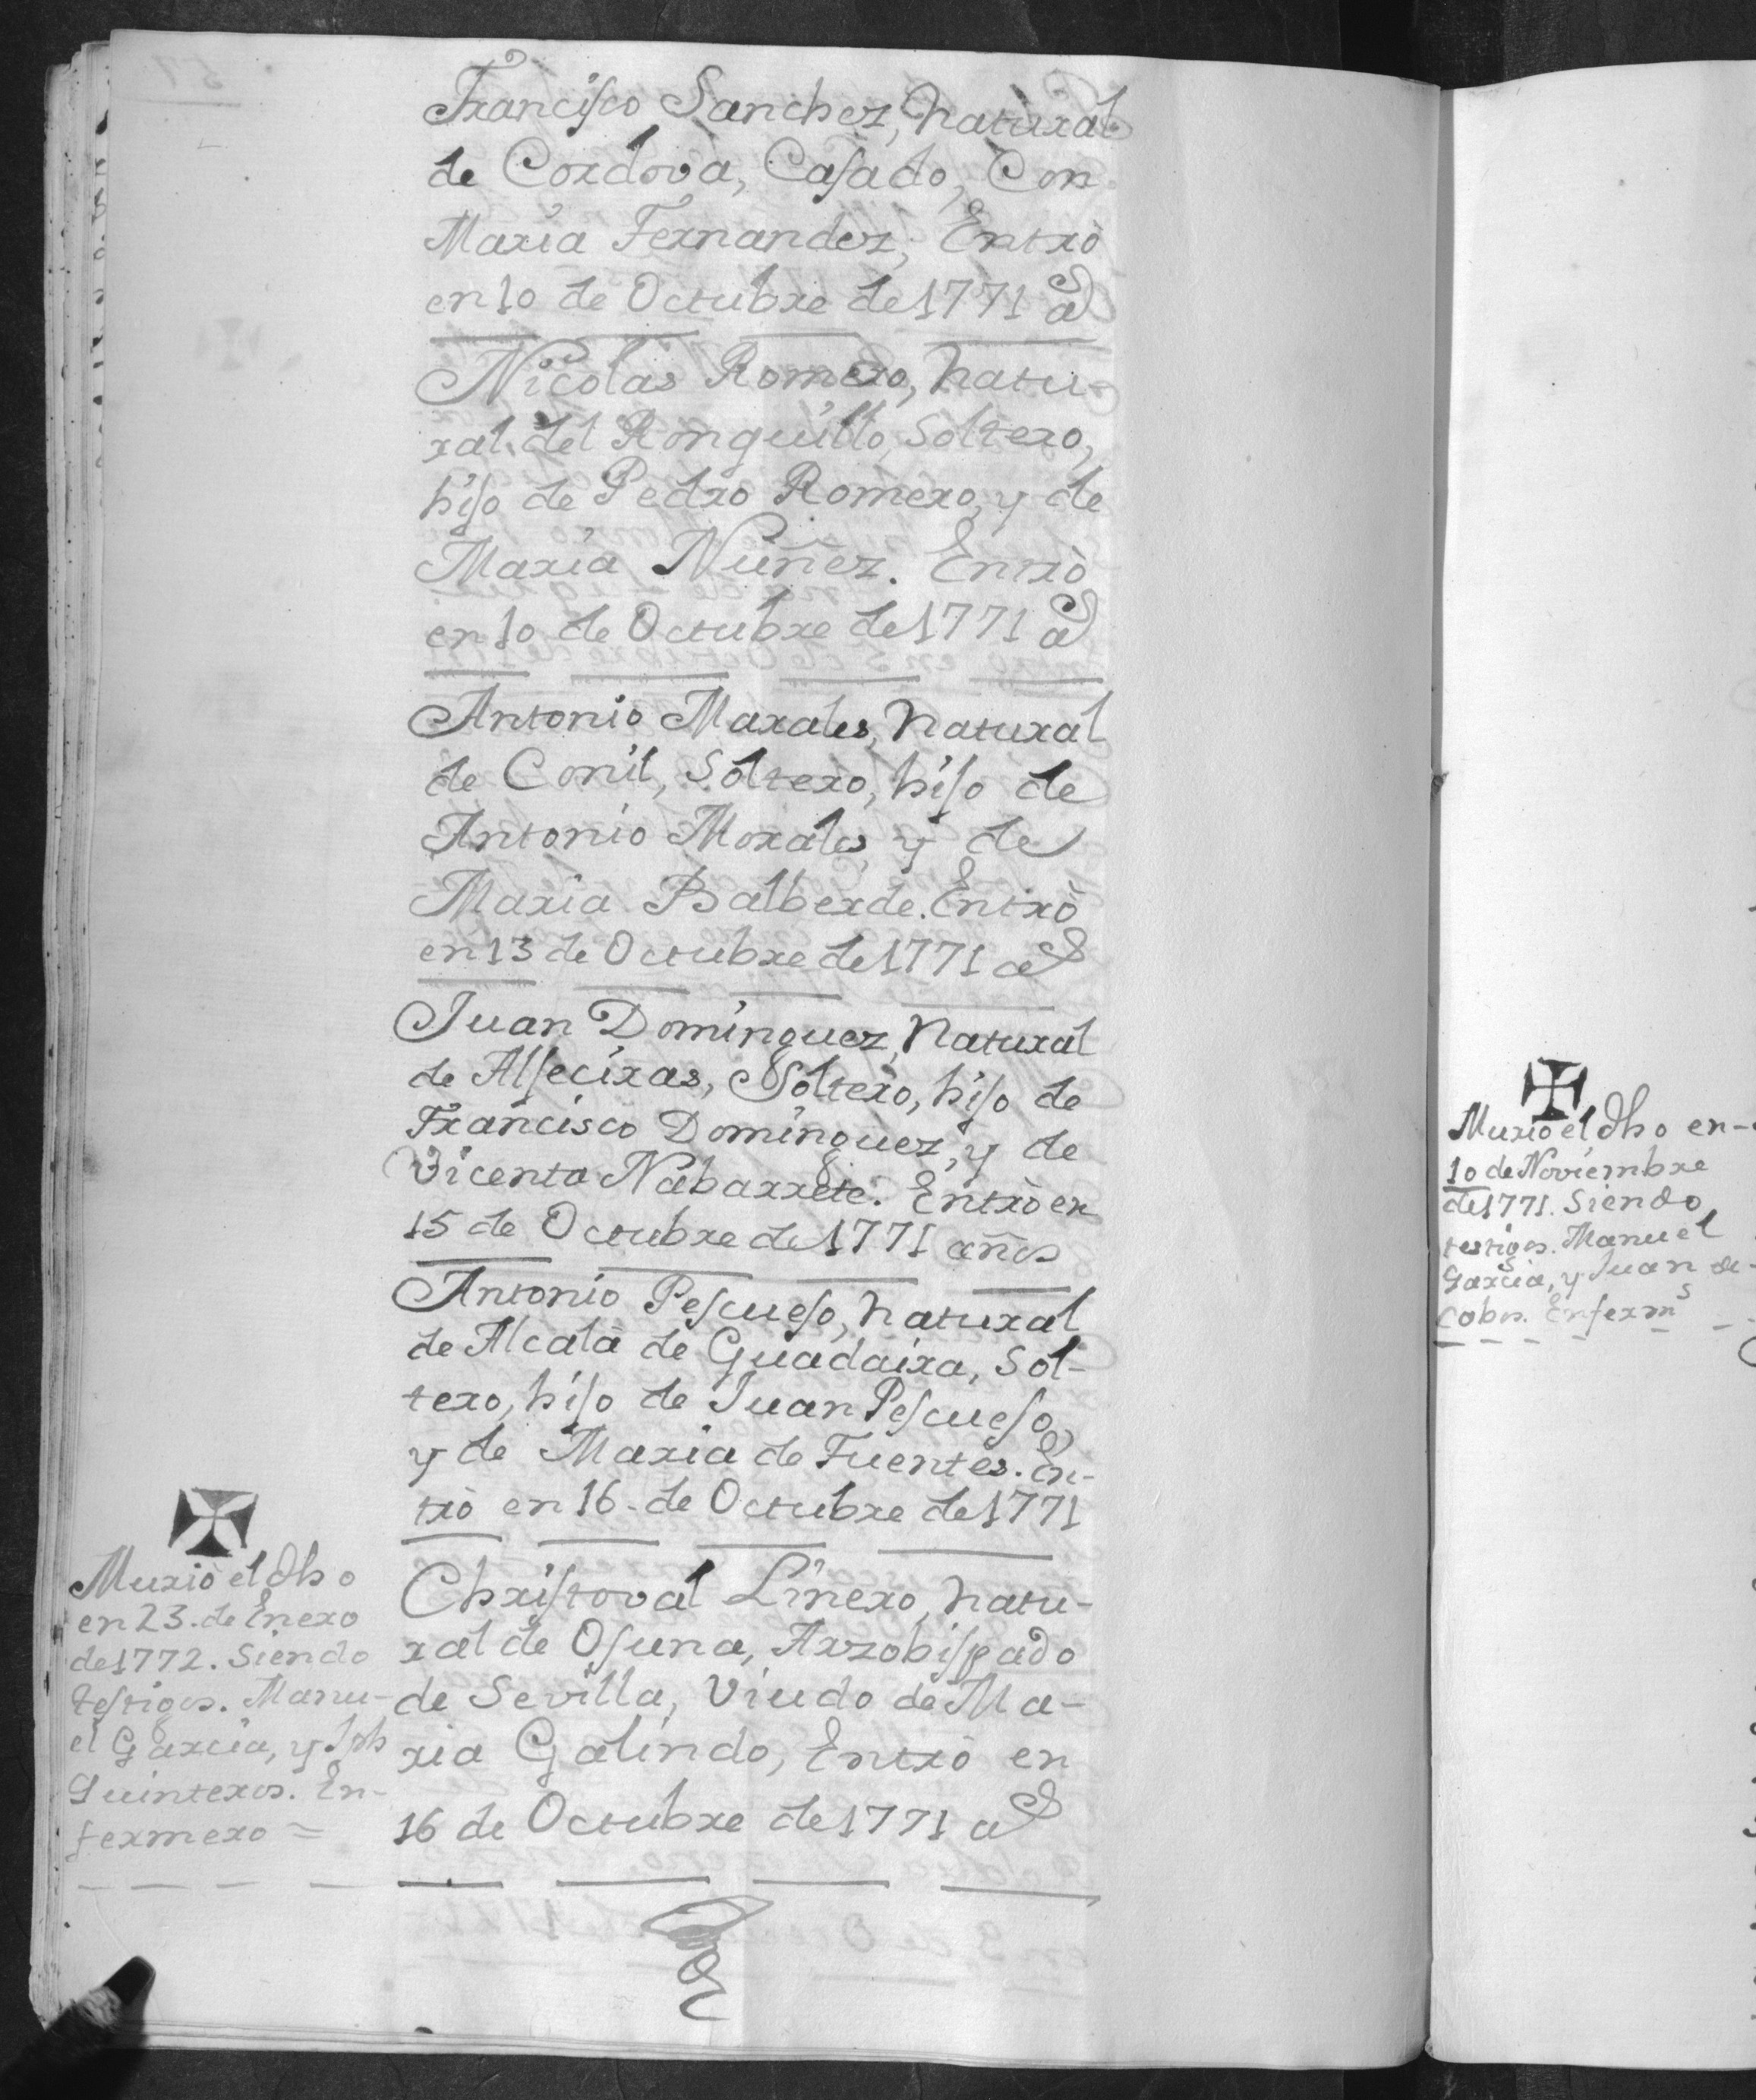 Francisco Sanchez, Natural
de Cordova, Casado, Con
Maria Fernandez, Entrò
en 10 de Octubre de 1771 a^s
Nicolas Romero, Natu-
ral del Ronquillo, Soltero,
hijo de Pedro Romero, y de
Maria Nuñez. Entrò
en 10 de Octubre de 1771 a^s
Antonio Marales, Natural
de Conil, Soltero, hijo de
Antonio Morales, y de
Maria Balberde. Entrò
en 13 de Octubre de 1771 a^s
Juan Dominguez, Natural
de Alseciras, Soltero, hijo de
Francisco Dominguez, y de
Vicenta Nabarrete. Entrò en
15 de Octubre de 1771 años
Antonio Pescueso, Natural
de Alcalà de Guadaira, Sol-
tero, hijo de Juan Pescueso,
y de Maria de Fuentes. En-
trò en 16 de Octubre de 1771
Christoval Linero, Natu-
ral de Osuna, Arzobispado
de Sevilla, Viudo de Ma-
ria Galindo, Entrò en
16 de Octubre de 1771 a^s
Muriò el dho
en 23. de Enero
de 1772. Siendo
testigos. Manu-
el Garcia, y Jph
Quinteros. En-
fermero =
Muriò el dho en-
10 de Noviembre
de 1771. Siendo
testigos. Manuel
Garcia, y Juan de
Cobos. Enferm^s